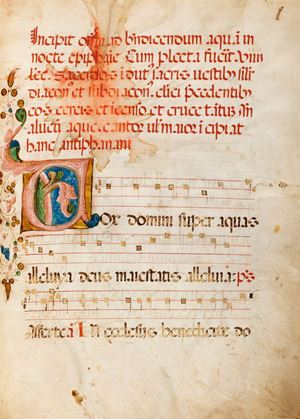 Incipit offitiũ ad bñdicendum aquã in
nocte epiphaie Cum pleeta fuerit
lec. Sacerdos idut' sacris vestibus
diacon' et subdiacon' elici precedentibus
cos cereis et icenso et cruce
aluei aque cantor ul'maior icipiat
hanc antiphanam
Vox domini super aquas
alleluya deus maiestatis alleluia: ps
Afferte a I N ecclesijs benedicite do